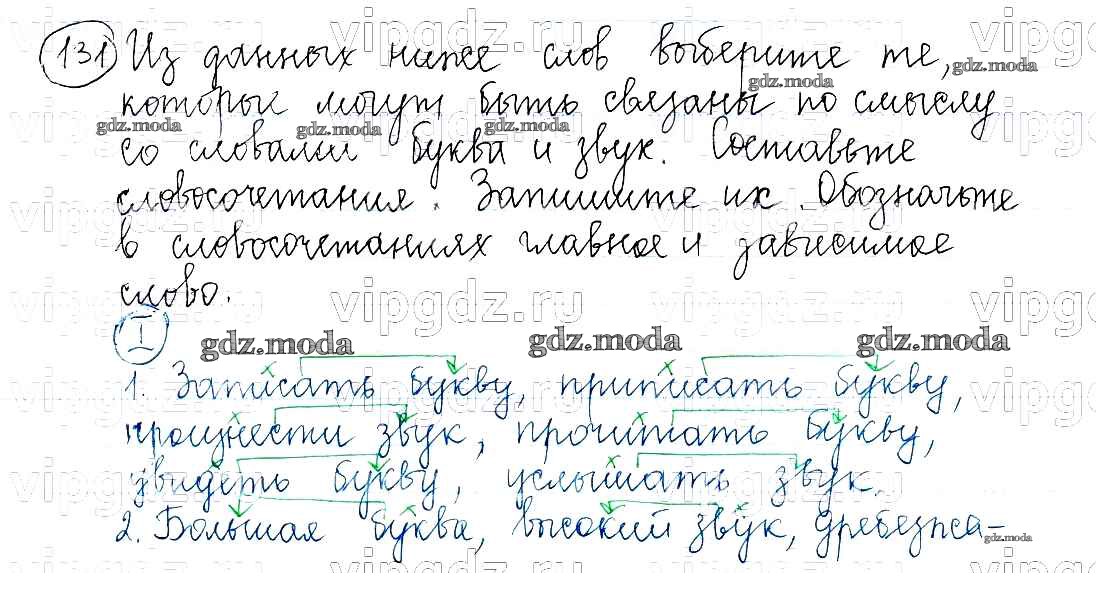 131 Из данных ниже слов выберите те,
которые могут быть связаны по смыслу
со словами буква и звук. Составьте
словосочетания. Запишите их. Обозначьте
в словосочетаниях главное и зависимое
слово.
I
1. Записать букву, приписать букву,
произнести звук, прочитать букву,
увидеть букву, услышать звук.
2. Большая буква, высокий звук, дребезжа-
vipgdz.ru
gdz.moda